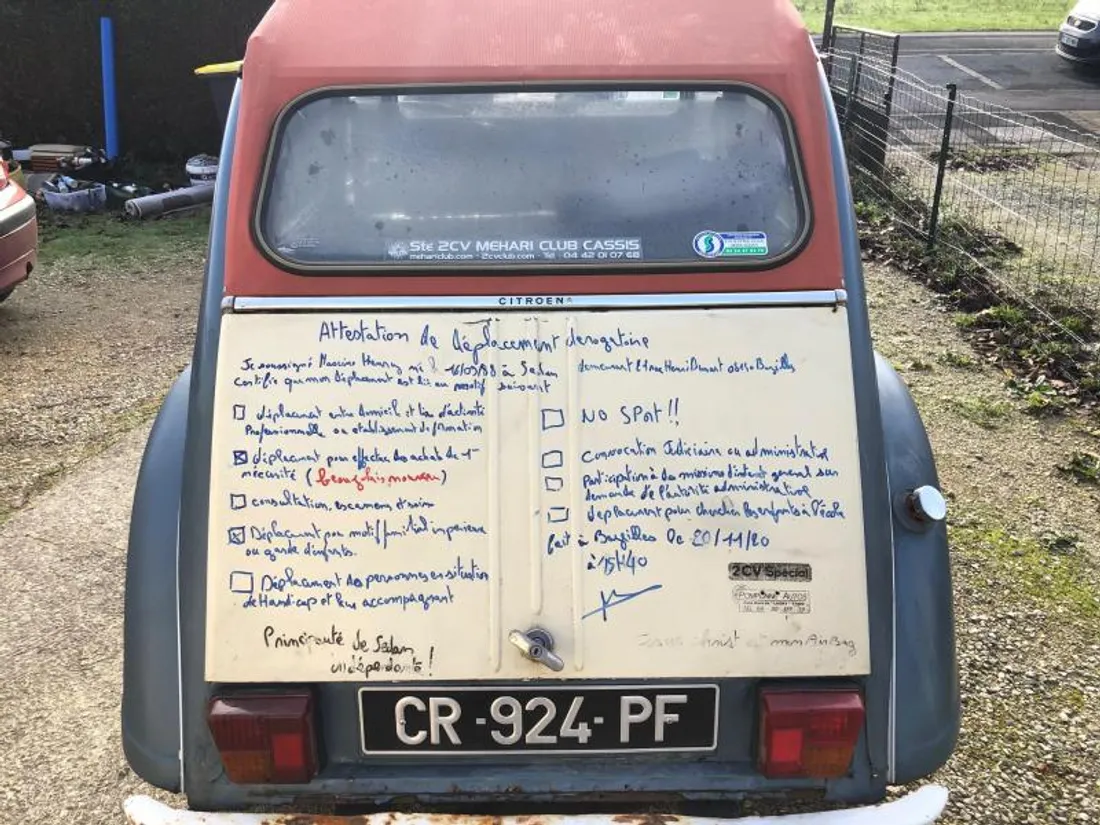 Sté 2CV MEHARI CLUB CASSIS
mehariclub.com - 2cvclub.com - Tél 04 42 01 07 68
CITROEN
Attestation de déplacement derogatoire
Je soussigné né 16/09/88 à Sedan
certifie que mon déplacement est lié au motif suivant
demeurant 21 rue Henri Dunant Bazeilles
déplacement entre domicil et lieu d'activité
Professionnelle ou etablissement de formation
déplacement pour effectuer des achats de 1ere
nécésité (beaujolais nouveau)
consultation, examens et soins
Déplacement pour motif familial impérieux
ou garde d'enfants.
Déplacement des personnes en situation
de Handicap et leur accompagnant
NO SPort !!
Convocation Judiciaire ou administrative
participation à des missions d'intéret general sur
demande de l'autorité administrative
deplacement pour chercher les enfants à l'école
fait à Bazeilles le 20/11/20
à 15h40
2CV Spécial
POMPONNE AUTOS
Principauté de Sedan
indépendante !
Jesus christ est mon AirBag
CR-924-PF